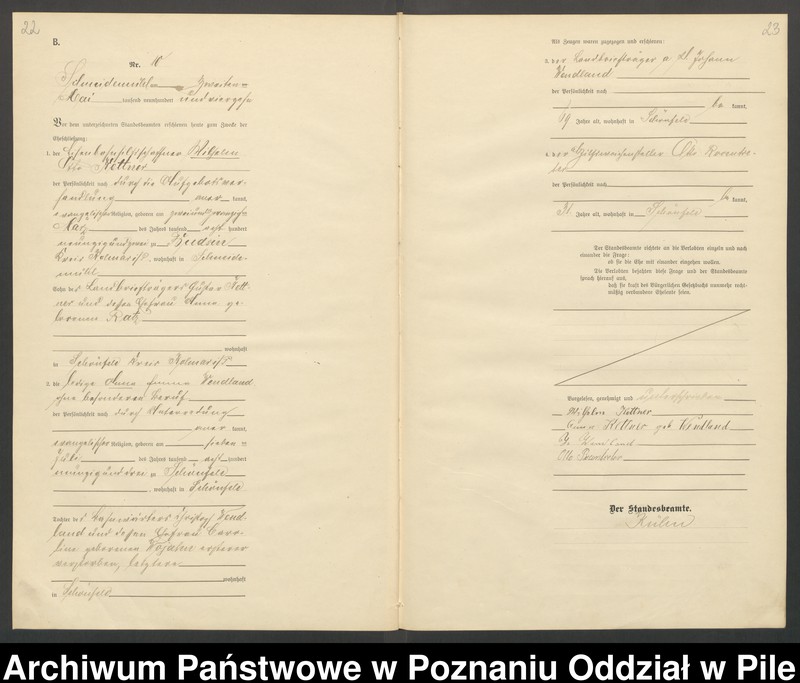 22
B.
Nr. 10
Schneidemühl, am zweiten
Mai tausend neunhundert und vierzehn
Vor dem unterzeichneten Standesbeamten erschienen heute zum Zwecke der
Eheschließung:
1. der Wilhelm
Otto Kettner
der Persönlichkeit nach durch die Aufgebotsver-
handlung aner kannt,
evangelischer Religion, geboren am zweiundzwanzigsten
März des Jahres tausend acht hundert
neunzigundzwei zu Budsin
Kreis Kolmar i/P., wohnhaft in Schneide-
mühl
Sohn des Landbriefträgers Gustav Kett-
ner und dessen Ehefrau Anna ge-
borenen Ratz
wohnhaft
in Schönfeld Kreis Kolmar i/P
2. die ledige Anna Emma Wendland
ohne besonderen Beruf
der Persönlichkeit nach durch Unterredung
aner kannt,
evangelischer Religion, geboren am sieben
Juli des Jahres tausend acht hundert
neunzigunddrei zu Schönfeld
, wohnhaft in Schönfeld
Tochter des Wend-
land und dessen Ehefrau Caro-
line geborenen ersterer
verstorben, letztere
wohnhaft
in Schönfeld
23
Als Zeugen waren zugezogen und erschienen:
3. der Landbriefträger a. D. Johann
Wendland
der Persönlichkeit nach
be kannt,
Jahre alt, wohnhaft in Schönfeld
4. der Hilfsweichensteller Otto Rosentre-
ter
der Persönlichkeit nach
be kannt,
31 Jahre alt, wohnhaft in Schönfeld
Der Standesbeamte richtete an die Verlobten einzeln und nach
einander die Frage:
ob sie die Ehe mit einander eingehen wollen.
Die Verlobten bejahten diese Frage und der Standesbeamte
sprach hierauf aus,
daß sie kraft des Bürgerlichen Gesetzbuchs nunmehr recht-
mäßig verbundene Eheleute seien.
Vorgelesen, genehmigt und unterschrieben
Wilhelm Kettner
Anna Kettner geb. Wendland
J. Wendland
Otto Rosentreter
Der Standesbeamte.
Archiwum Państwowe w Poznaniu Oddział w Pile